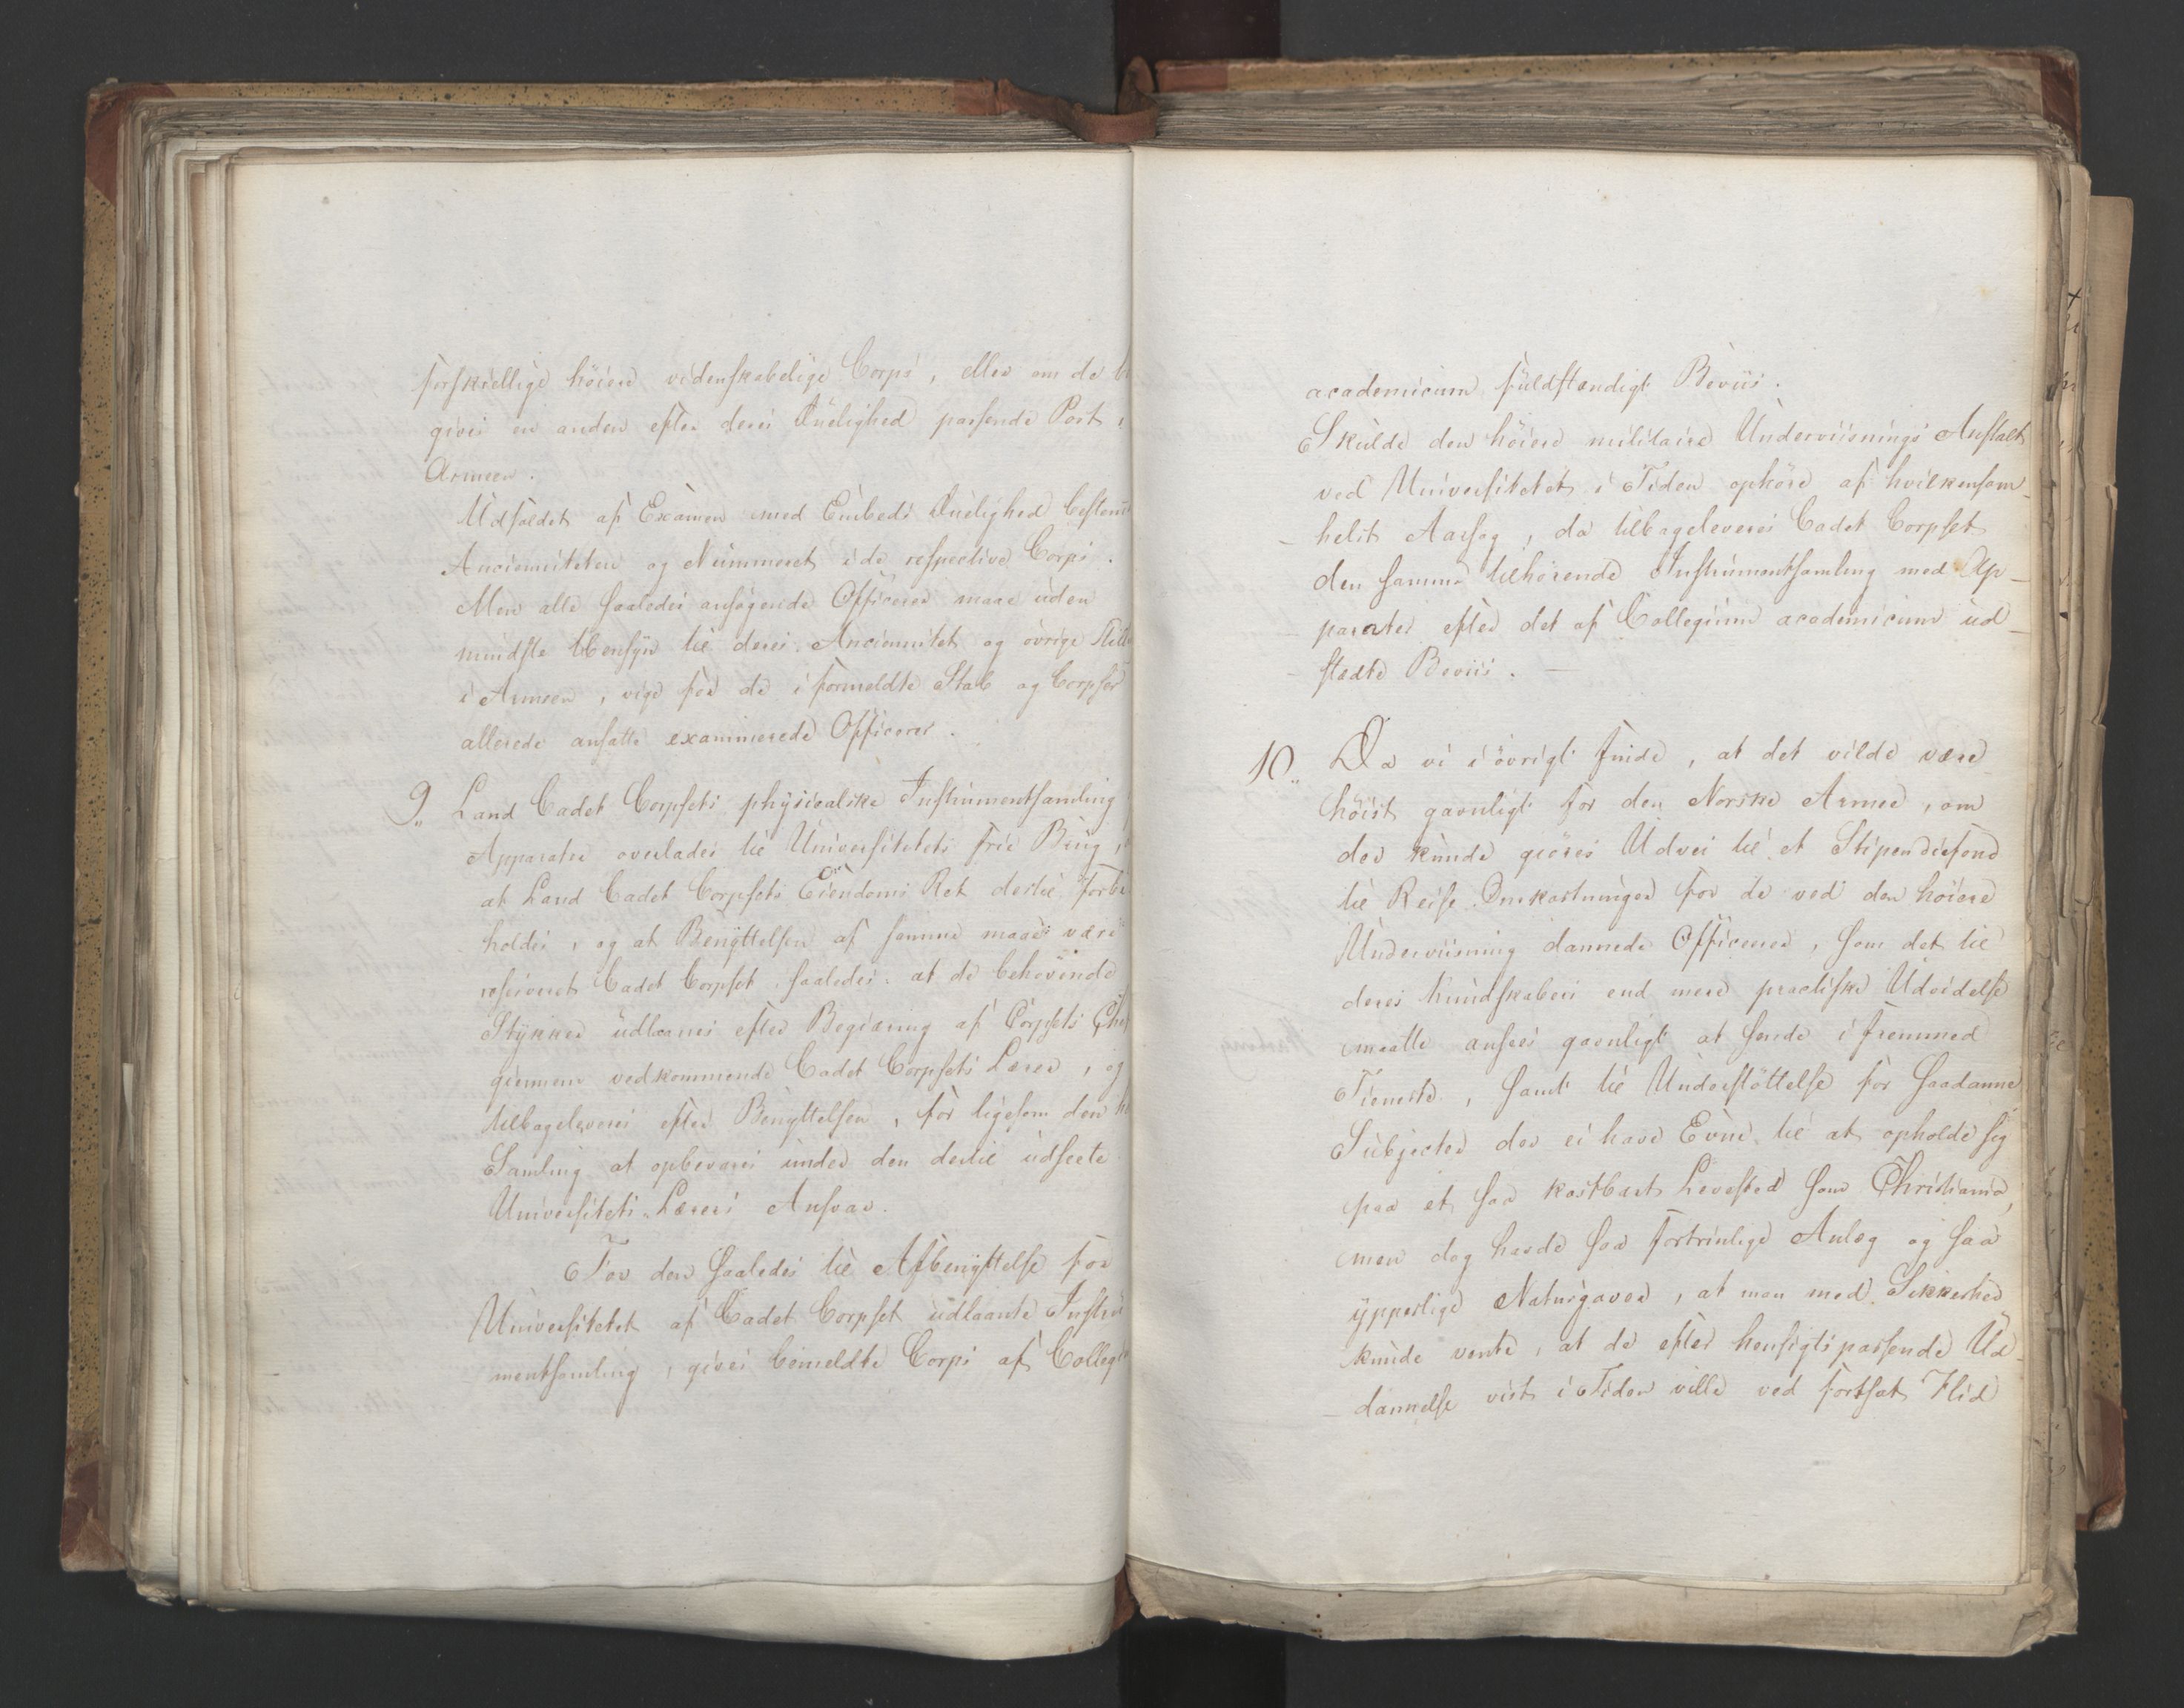 forskiellige höiere videnskabelige Corps, eller om de b
gives en anden efter deres Duelighed passende Post i
Armeen.
Udfaldet af Examen med Embeds Duelighed bestem̅
Ancienniteten og Nummeret i de respective Corps.
Men alle saaledes ansøgende Officerer maae uden
mindste Hensyn til deres Anciennitet og øvrige Still
i Armeen, vige for de i formeldte Stab og Corpser
allerede ansatte examinerede Officerer.
9„ Land Cadet Corpsets physicalske Instrumentsamling
Apparater overlades til Universitetets frie Brug,
at Land Cadet Corpsets Eiendoms Ret dertil forbe
holdes, og at Benyttelsen af samme maae være
reserveret Cadet Corpset saaledes at de behövende
Stykker udlaanes efter Begiæring af Corpsets Chef
giennem vedkommende Cadet Corpsets Lærer, og
tilbageleveres efter Benyttelsen, for ligesom den he
Samling at opbevares under den dertil udseete
Universitets Lærers Ansvar.
For den saaledes til Afbenyttelse for
Universitetet af Cadet Corpset udlaante Instru
mentsamling, gives bemeldte Corps af Colleg
academicum fuldstændigt Beviis.
Skulde den höiere militaire Underviisnings Anstalt
ved Universitetet i Tiden ophöre af hvilkensom-
helst Aarsag, da tilbageleveres Cadet Corpset
den samme tilhørende Instrumentsamling med Ap-
parater efter det af Collegium academicum ud-
stædte Beviis. —
10„ Da vi i övrigt finde, at det vilde være
höist gavnligt for den Norske Armee, om
der kunde giöres Udvei til et Stipendiefond
til Reise Omkostninger for de ved den höiere
Underviisning dannede Officerer, som det til
deres Kundskabers end mere practiske Udvidelse
maatte ansees gavnligt at sende i fremmed
Tieneste, samt til Understöttelse for saadanne
Subjecter der ei have Evne til at opholde sig
paa et saa kostbart Levested som Christiania,
men dog havde saa fortrinlige Anlæg og saa
ypperlige Naturgaver, at man med Sikkerhed
kunde vente, at de efter hensigtspassende Ud-
dannelse vist i Tiden ville ved fortsat Flid